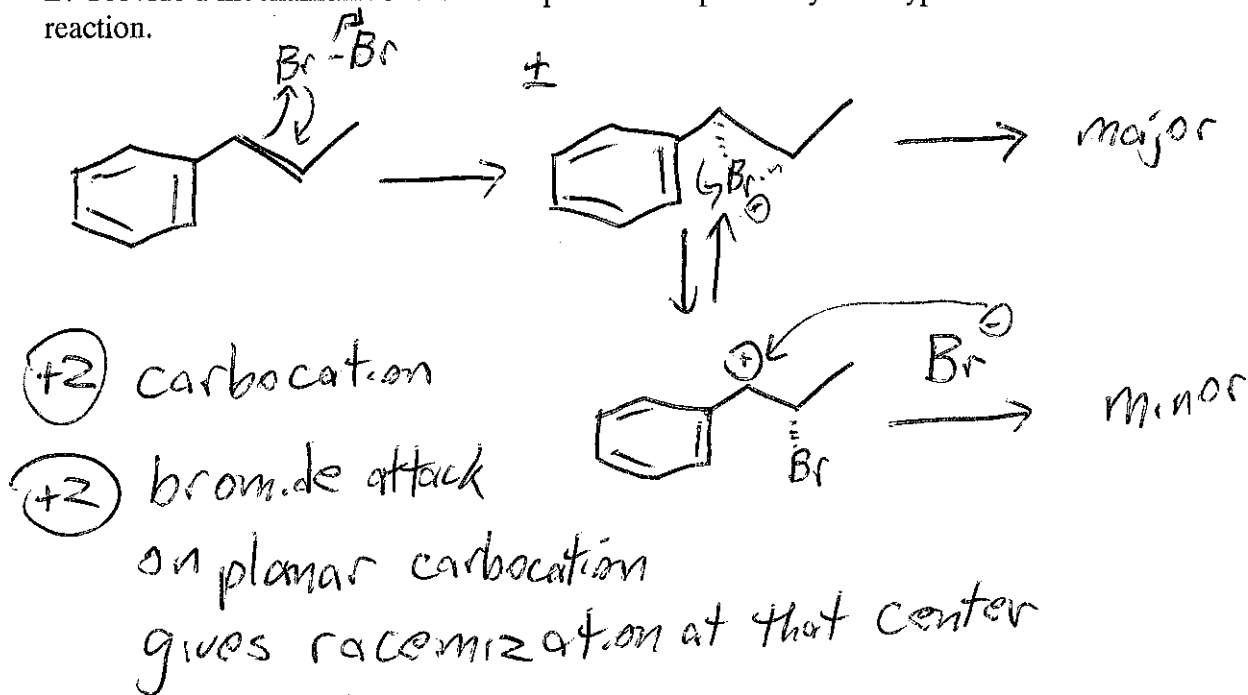 reaction.
Br-Br
±
major
Br
⊕
⊕
Br
⊖
minor
Br
+2 carbocation
+2 bromide attack
on planar carbocation
gives racemization at that center